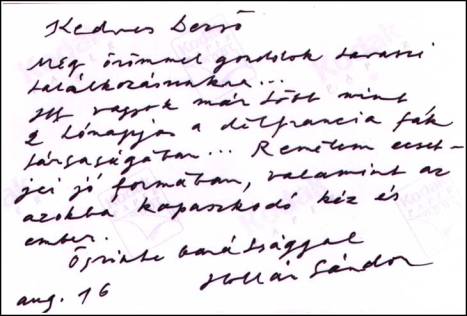 Kedves Dezső
Még örömmel gondolok tavaszi
találkozásunkra...
Itt vagyok már több mint
2 hónapja a délfrancia fák
társaságában... Remélem ecset-
jei jó formában, valamint az
azokba kapaszkodó kéz és
ember.
Őszinte barátsággal
Hollár Sándor
aug. 16